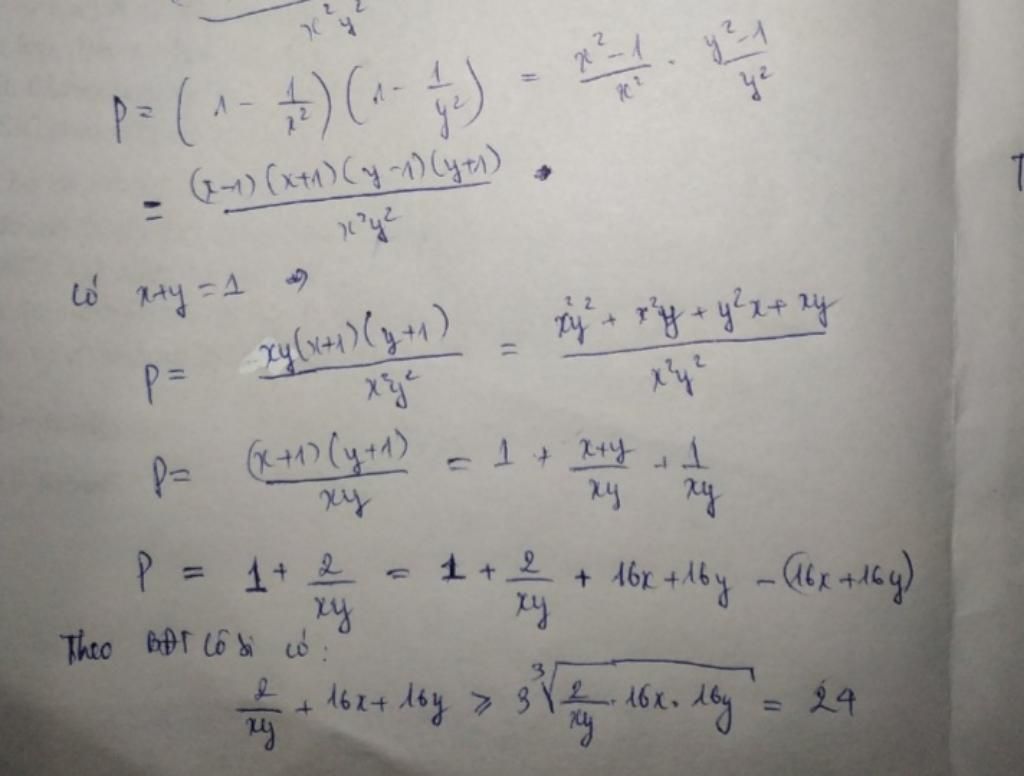 x²y²
P = (1 - 1/x²)(1 - 1/y²) = (x²-1)/x² . (y²-1)/y²
= (x-1)(x+1)(y-1)(y+1)/x²y²
Có x+y = 1 =>
P = xy(x+1)(y+1)/x²y² = (x²y² + x²y + y²x + xy)/x²y²
P = (x+1)(y+1)/xy = 1 + (x+y)/xy + 1/xy
P = 1 + 2/xy = 1 + 2/xy + 16x + 16y - (16x + 16y)
Theo BĐT Cô si có:
2/xy + 16x + 16y ≥ 3∛(2/xy . 16x . 16y) = 24